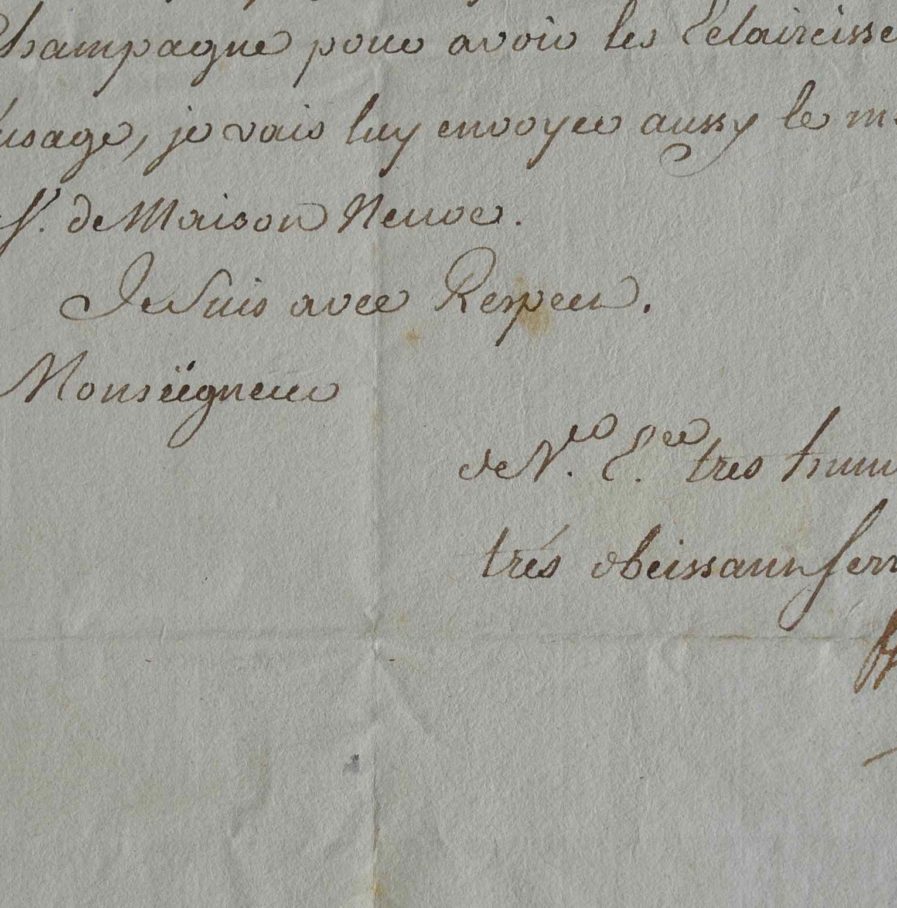 Champagne pour avoir les Eclairciss
usage, je vais luy envoyer aussy le m
Sr. de Maison Neuve.
Je suis avec Respect.
Monseigneur
de V.re E.ce tres hum
trés obeissant serv